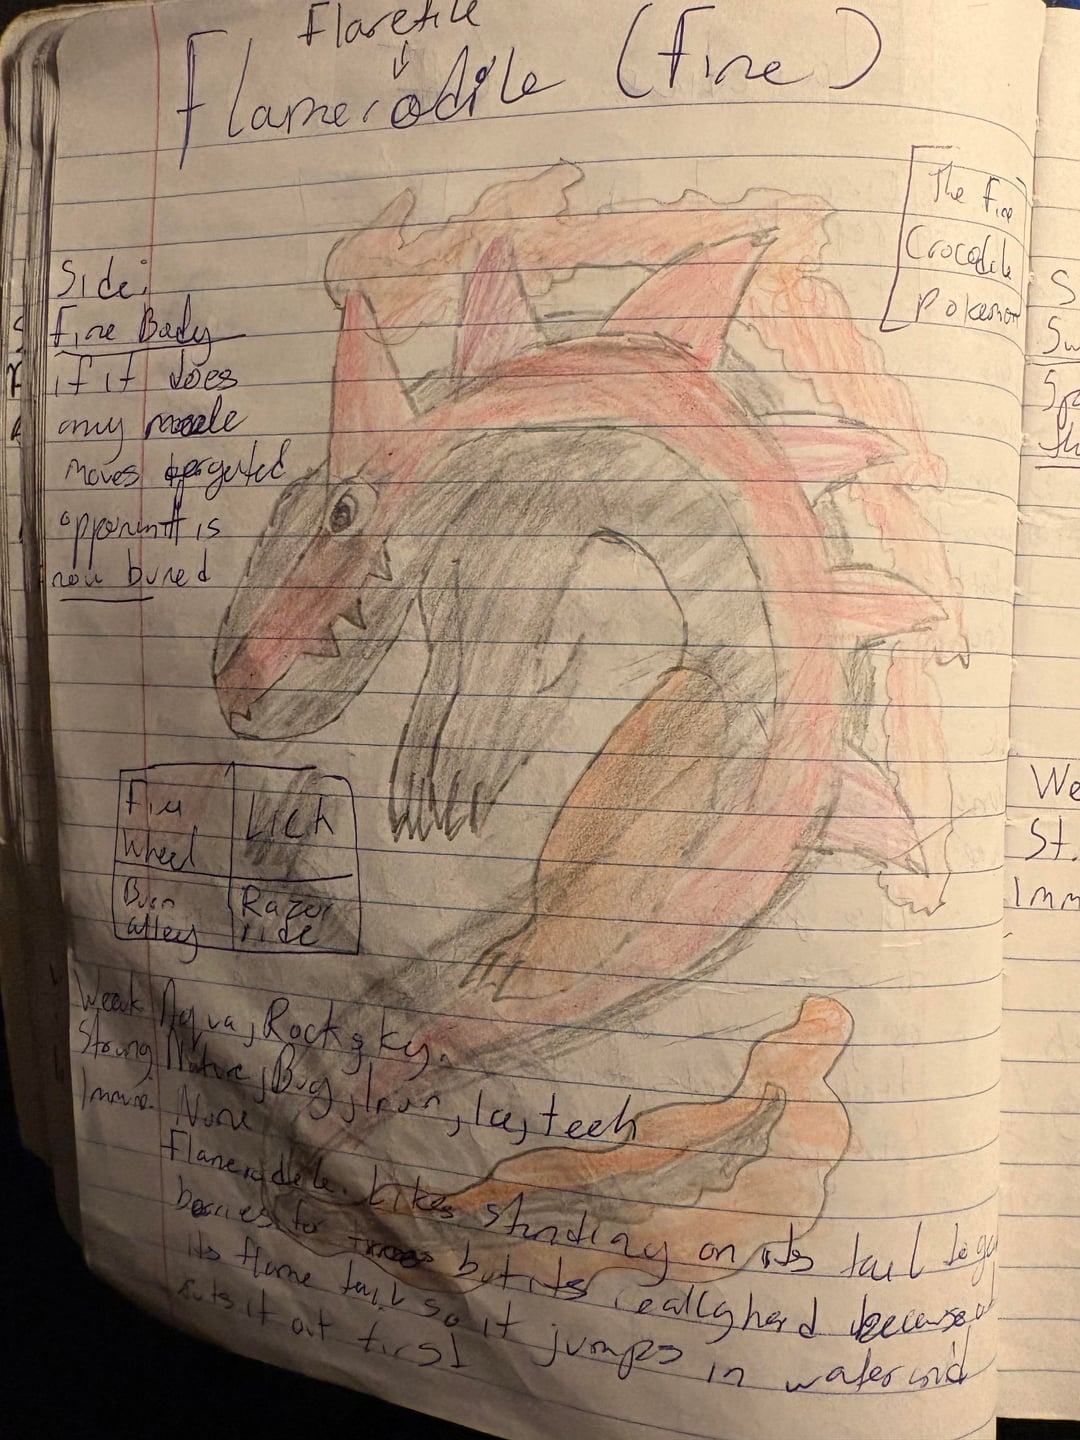 Flaretile
↓
Flamerodile (Fire)
The Fire
Crocodile
Pokemon
Side:
Fire Body
if it does
any
moves targeted
opponent is
now bured
Fire
Wheel
Lick
Burn
alley
Razor
side
Weak Aqua, Rock &
Strong Nature, Bug, Iron, Ice, teeth
Immune: None
Flamerodile. Likes standing on its tail to ga
berries for trees but its really hard because of
its flame tail so it jumps in water and
puts it out first
S
Sw
Spa
We
St.
Imm